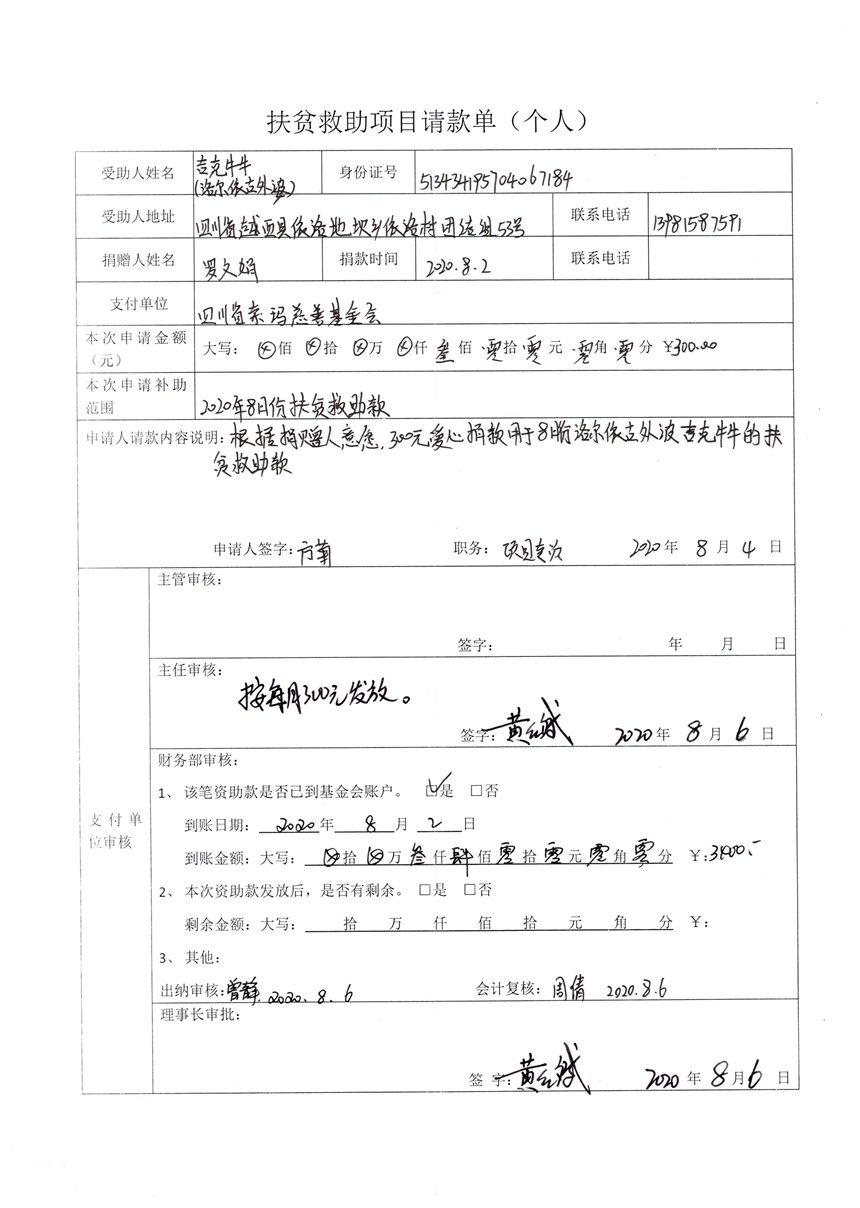 扶贫救助项目请款单（个人）
受助人姓名 吉克牛牛 身份证号 513434195704067184
(洛尔依立外波)
受助人地址 四川省越西县依洛地坝乡依洛村团结组53号 联系电话 13981587591
捐赠人姓名 罗文娟 捐款时间 2020.8.2 联系电话
支付单位 四川省索玛慈善基金会
本次申请金额（元） 大写： ⊗佰 ⊗拾 ⊗万 ⊗仟 叁佰 零拾 零元 零角 零分 ¥300.00
本次申请补助范围 2020年8月份扶贫救助款
申请人请款内容说明：根据捐赠人意愿，300元爱心捐款用于8月份洛尔依立外波吉克牛牛的扶
贫救助款
申请人签字： 职务：项目专员 2020年 8月 4日
支付单位审核
主管审核：
签字： 年 月 日
主任审核：
按每月300元发放。
签字： 2020年 8月 6日
财务部审核：
1、 该笔资助款是否已到基金会账户。 ☑是 □否
到账日期： 2020年 8月 2日
到账金额：大写： ⊗拾 ⊗万 叁仟 肆佰 零拾 零元 零角 零分 ¥：3400.-
2、 本次资助款发放后，是否有剩余。 □是 □否
剩余金额：大写： 拾 万 仟 佰 拾 元 角 分 ¥：
3、 其他：
出纳审核：曾静 2020.8.6 会计复核：周倩 2020.8.6
理事长审批：
签 字： 2020年 8月 6日